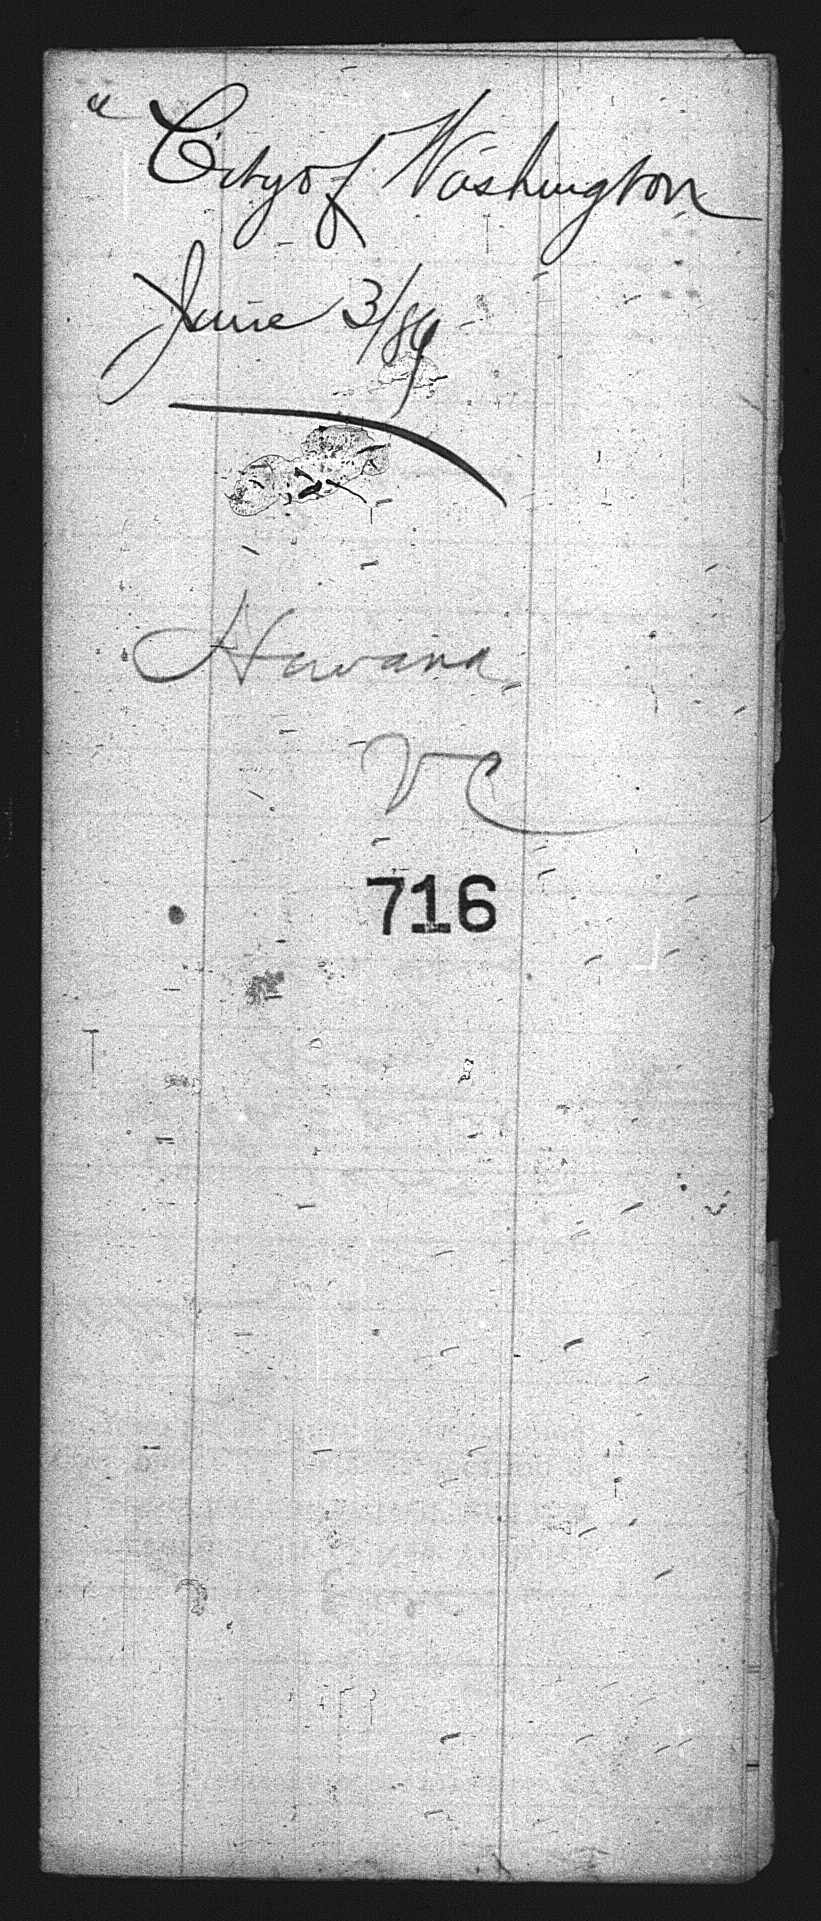 " City of Washington
June 3/89
Havana
VC
716